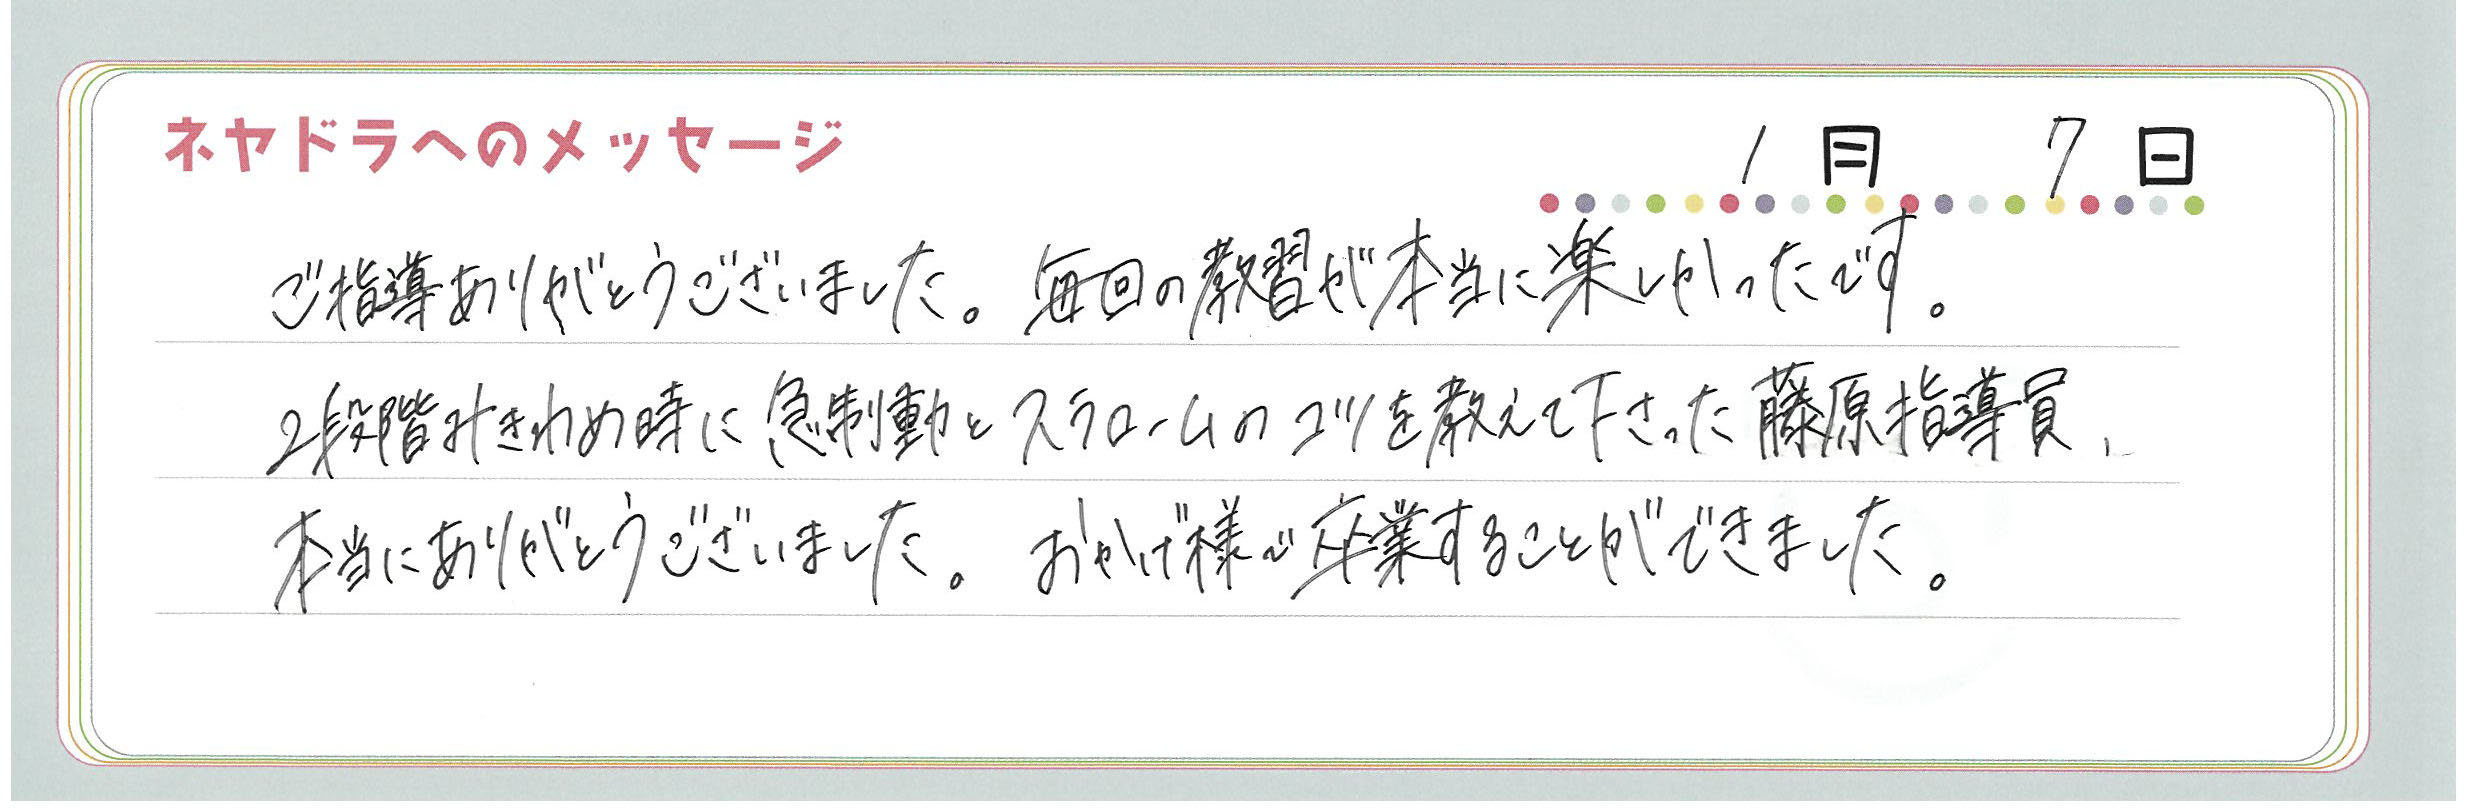 ネヤドラへのメッセージ
1月 7日
ご指導ありがとうございました。毎回の教習が本当に楽しかったです。
2段階みきわめ時に急制動とスラロームのコツを教えて下さった藤原指導員、
本当にありがとうございました。おかげ様で卒業することができました。